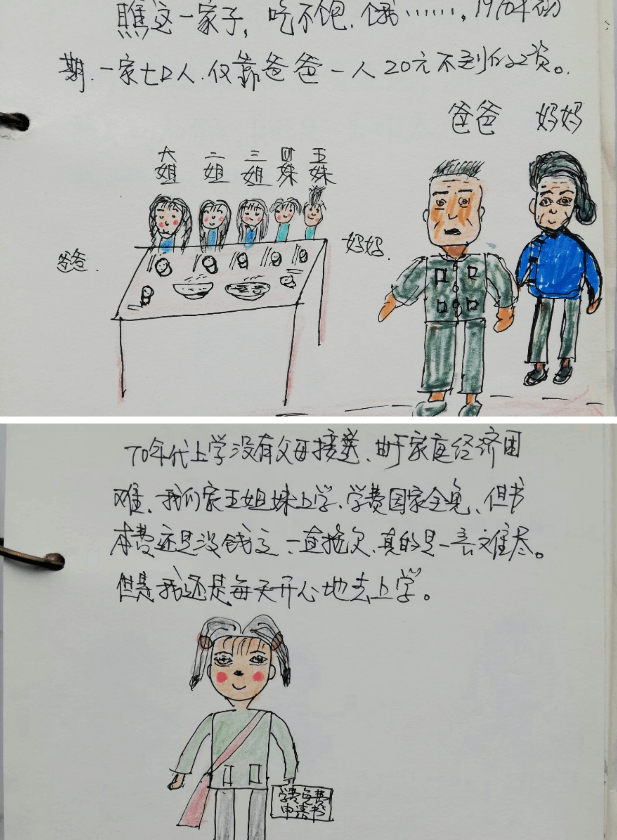 瞧这一家子，吃不饱，饿……，1970年初
期，一家七口人，仅靠爸爸一人20元不到的工资。
爸爸 妈妈
大姐 二姐 三姐 四妹 五妹
爸爸. 妈妈.
70年代上学没有父母接送、由于家庭经济困
难、我们家五姐妹上学、学费国家全免、但书
本费还是没钱交、一直拖欠、真的是一言难尽。
但是我还是每天开心地去上学。
学费免费
申请书